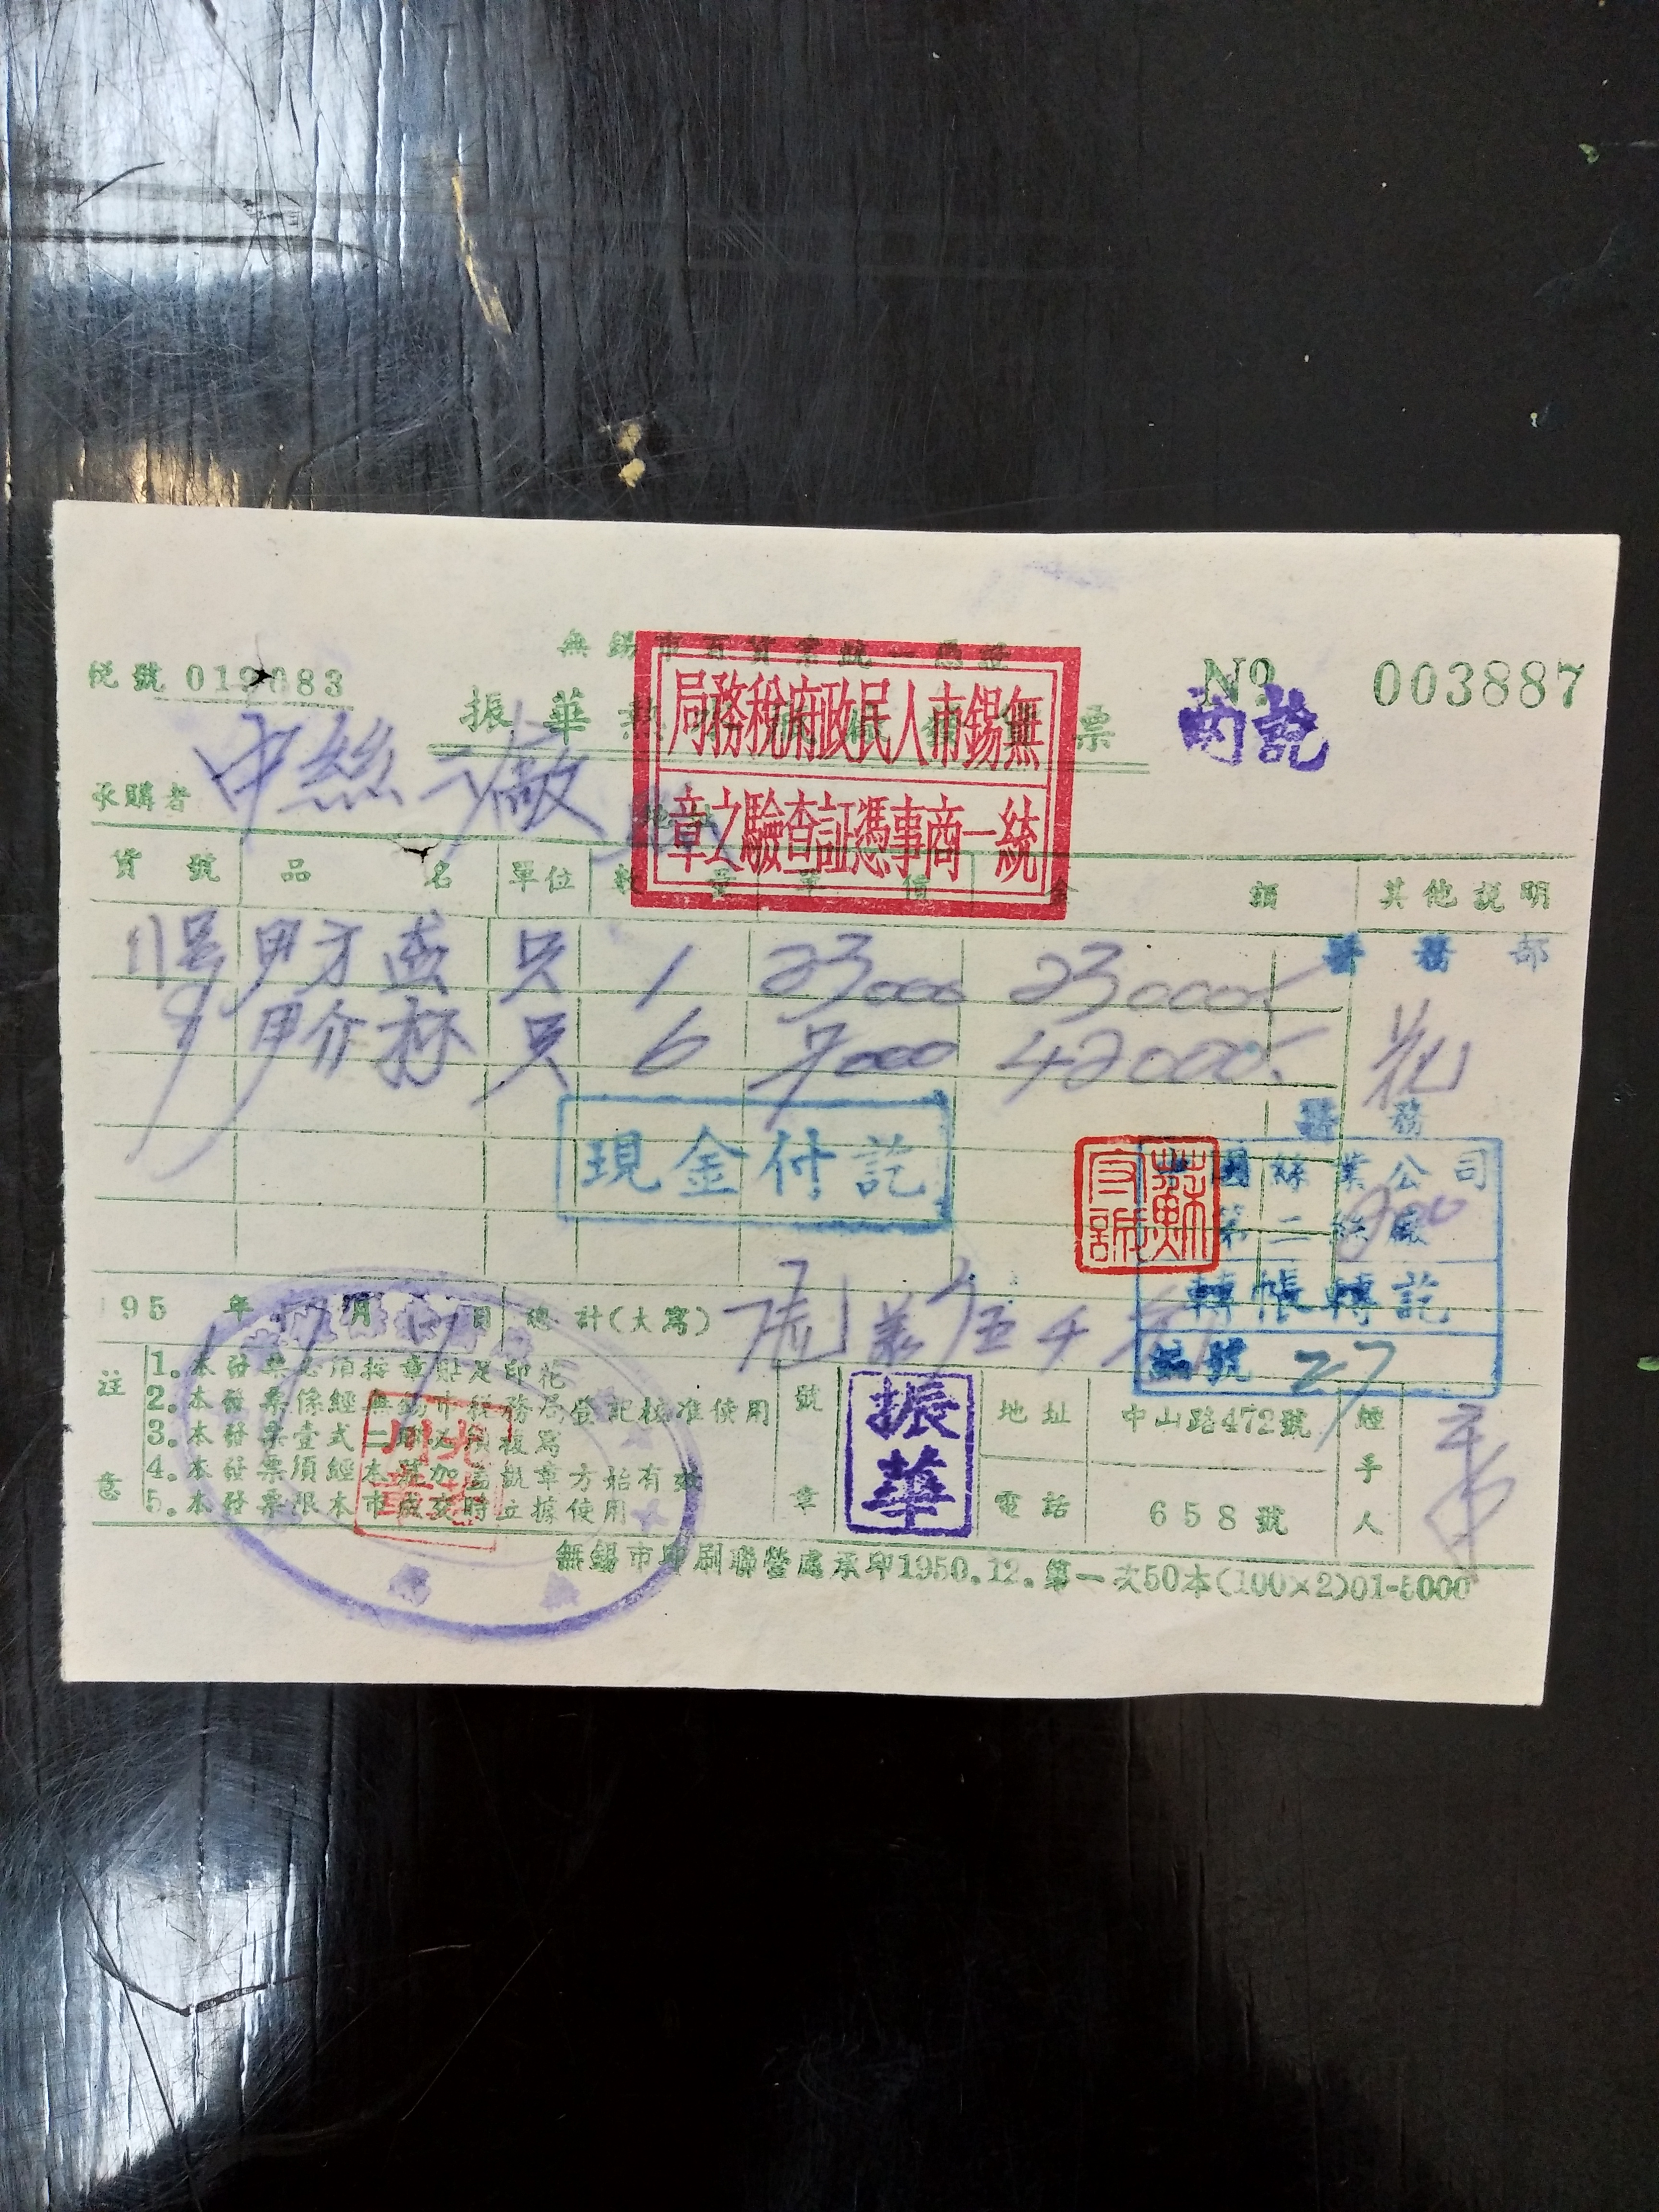 無錫市百貨業統一憑證
稅號 019083
No 003887
振華熱水瓶廠發貨票
無錫市人民政府稅務局
統一商事憑証查驗之章
訖
承購者 中絲二廠 地址
貨號 品名 單位 數量 單價 金額 其他說明
11号 只 1 23000 23000
只 6 7000 42000
醫務部
花
醫務
現金付訖
蘇
國絲業公司
第二絲廠
轉帳轉訖
編號 27
195 年 月 日 總計(大寫) 萬 伍千
註意
1.本發票必須按章貼足印花
2.本發票係經無錫市稅務局登記核准使用
3.本發票壹式二聯必須複寫
4.本發票須經本號加蓋戳章方始有效
5.本發票限本市成交時立據使用
號章 振華
地址 中山路472號
電話 658號
經手人
無錫市印刷聯營處承印1950.12.第一次50本(100×2)01-5000